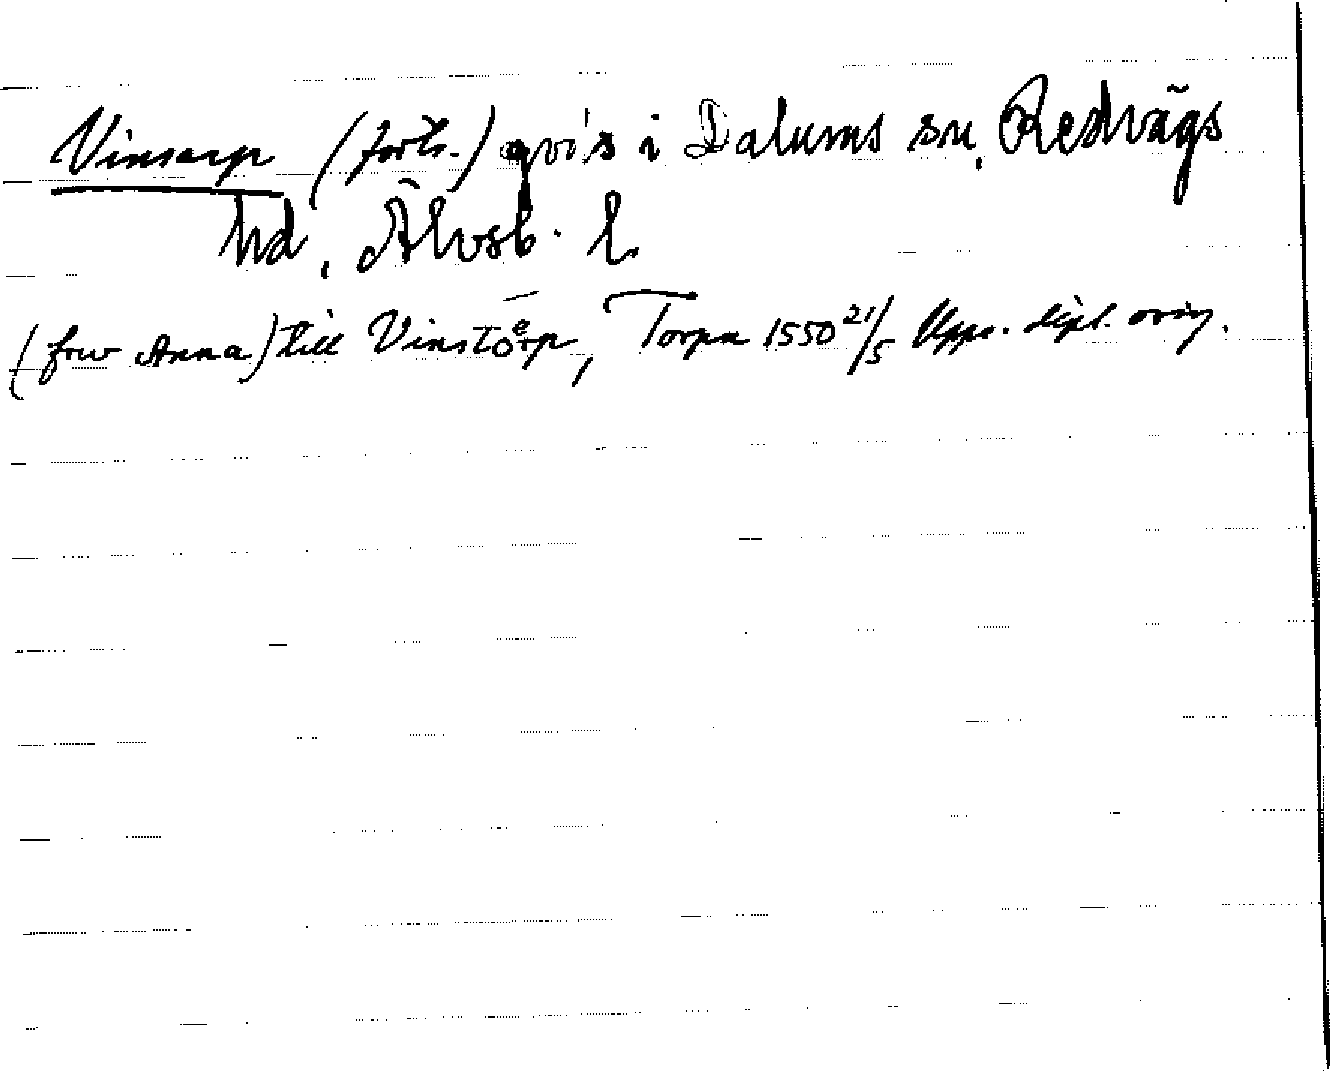 Vinsarp (forts.) gods i Dalums sn, Redvägs
hd, Älvsb. l.
(frw Anna) till Vinstoͤrp, Torpa 1550 21/5 Upps. dipl. orig.